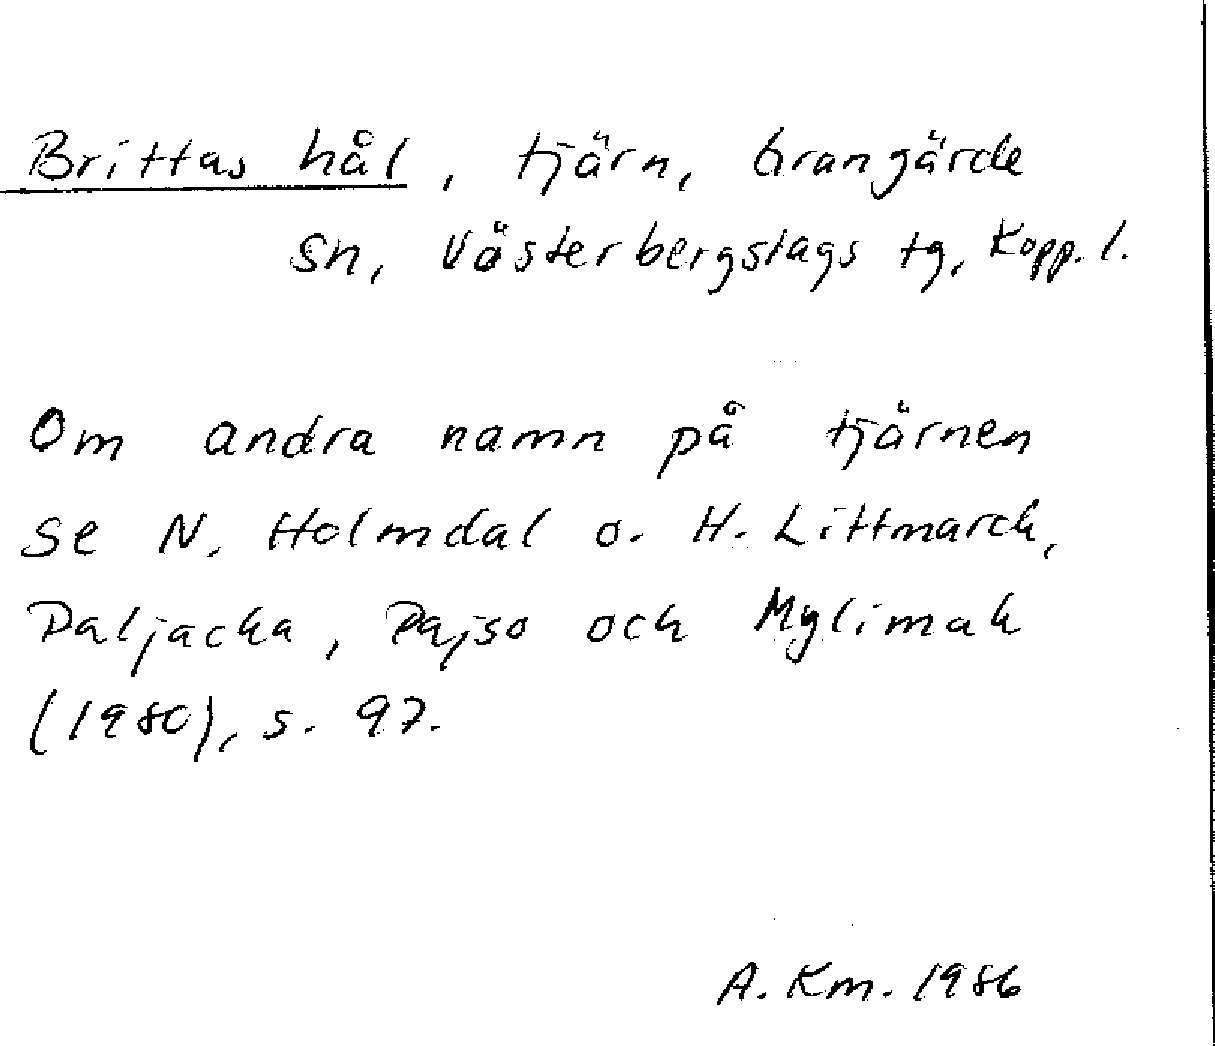 Brittas hål, tjärn, Grangärde
sn, Västerbergslags tg, Kopp. l.
Om andra namn på tjärnen
se N. Holmdal o. H. Littmarck,
Daljacka, Pajso och Mylimak
(1980), s. 97.
A. Km. 1986